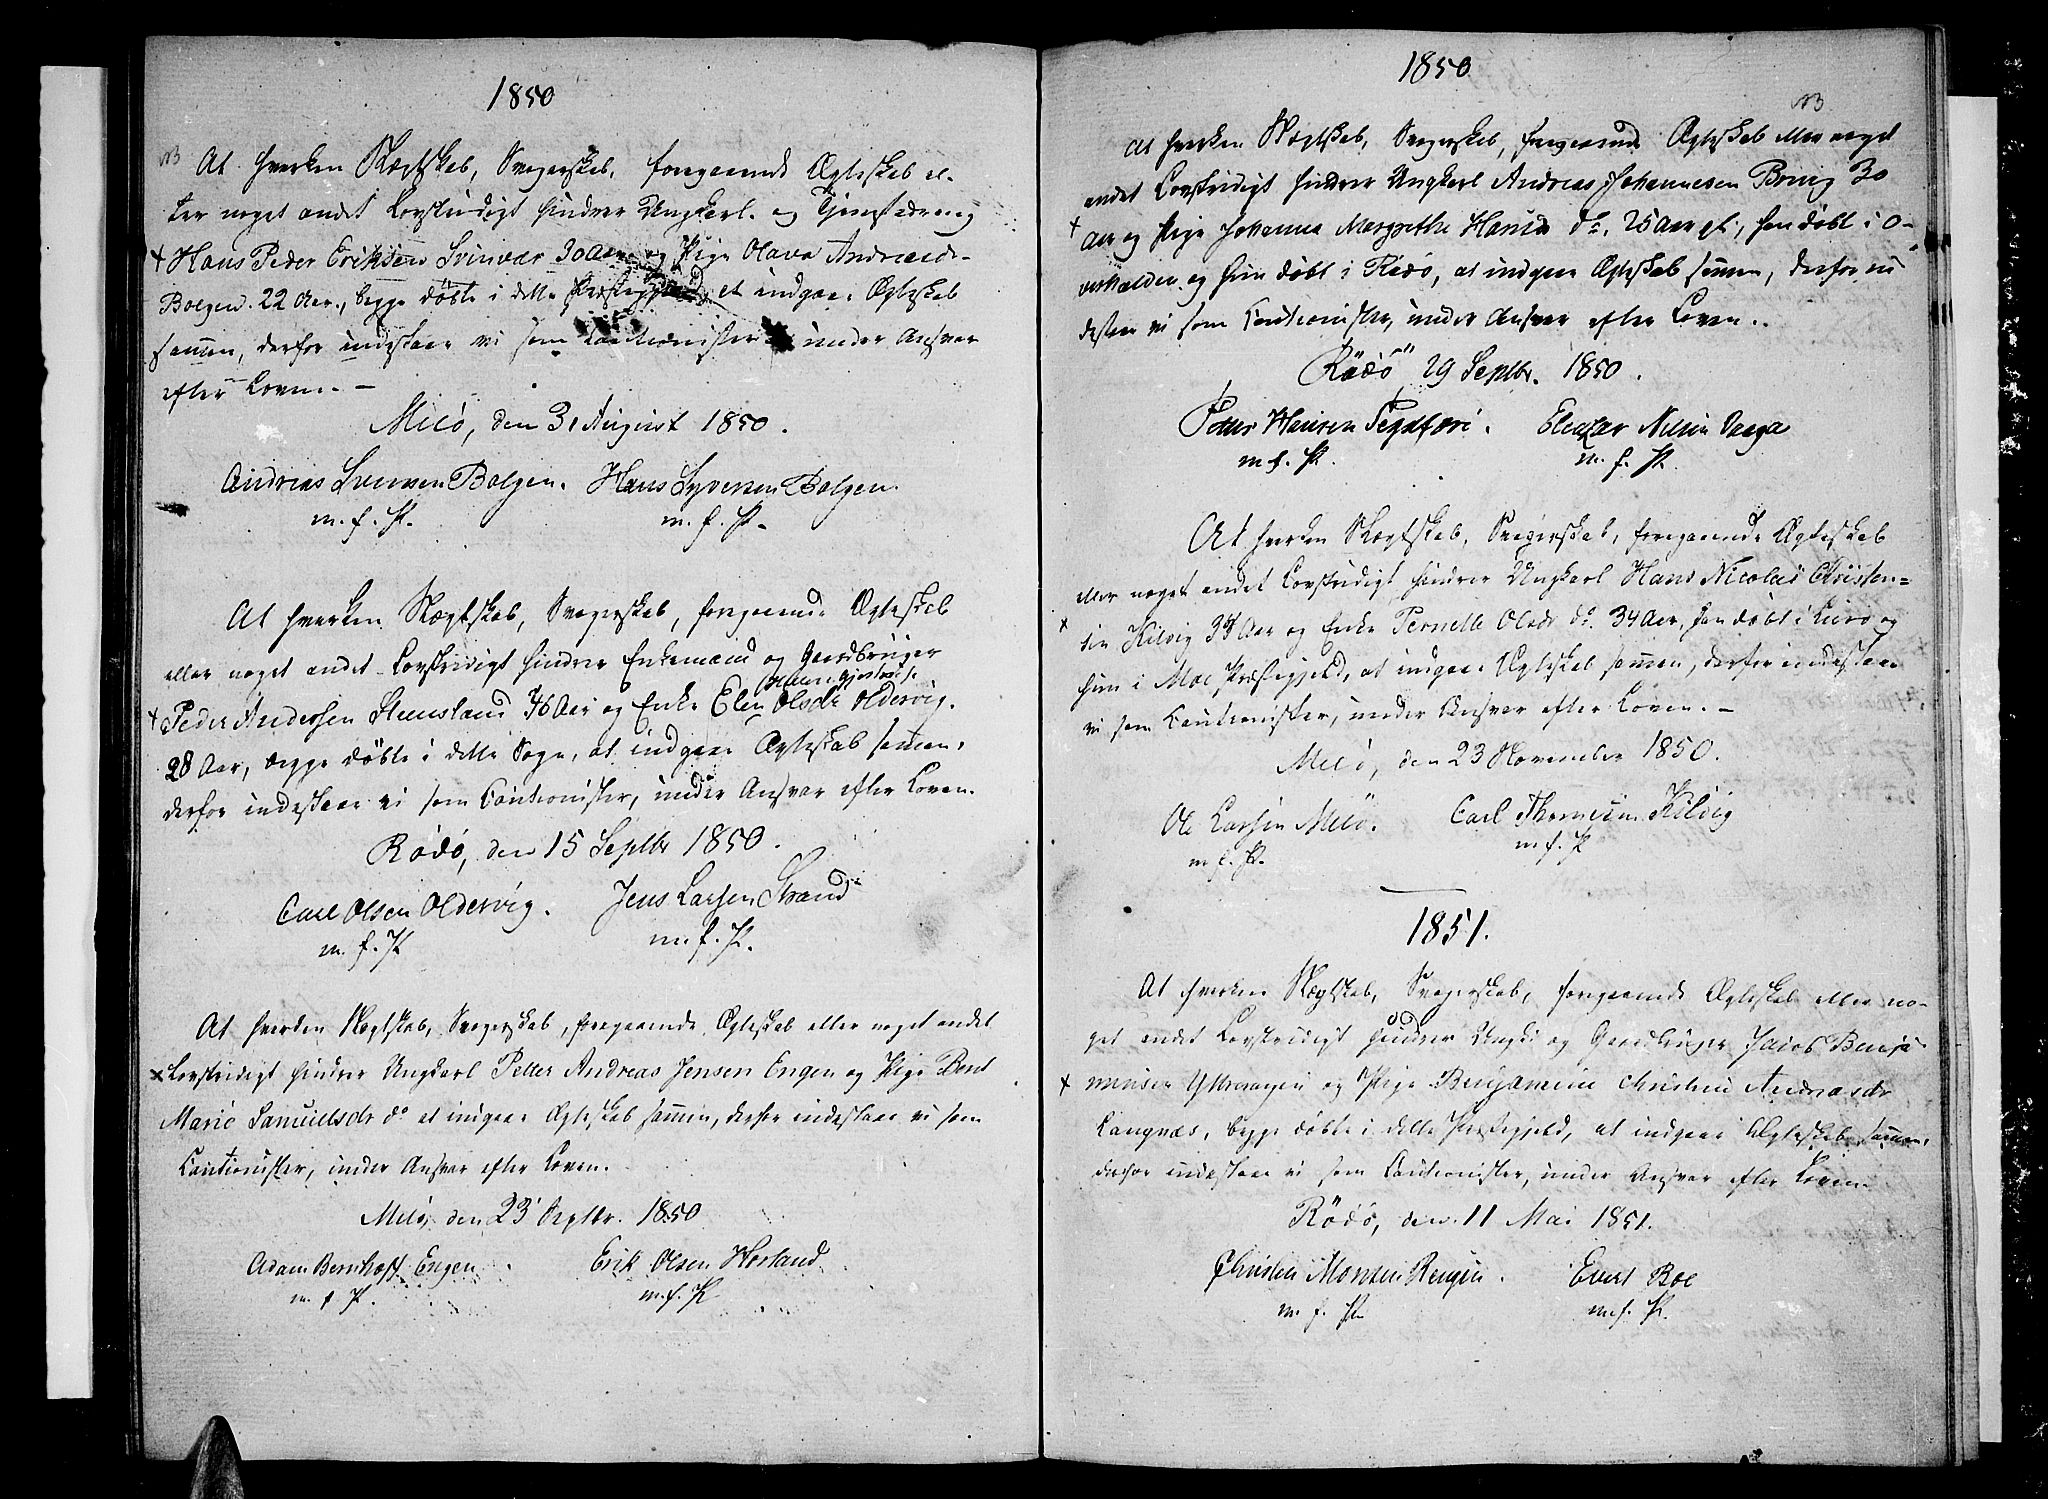 1850
NB At hverken Slægtskab, Svogerskab, foregaaende Ægteskab el-
ler noget andet Lovstridigt hindrer Ungkarl og Tjenestedreng
+ Hans Peder Eriksen Svinvær 30 Aar og Pige Olava Andreasdr
Bolgen 22 Aar, begge døbte i dette Præstegjeld at indgaae Ægteskab
sammen, derfor indestaae vi som Cautionister under Ansvar
efter Loven. -
Melö, den 31 August 1850.
Andreas Svensen Bolgen. Hans Syversen Bolgen.
m. f. P. m. f. P.
At hverken Slægtskab, Svogerskab, foregaaende Ægteskab
eller noget andet Lovstridigt hindrer Enkemand og Gaardbruger
+ Peder Andersen Steensland 46 Aar og Enke Elen Olsdr Oldervig.
28 Aar, begge døbte i dette Sogn, at indgaae Ægteskab sammen,
derfor indestaae vi som Cautionister, under Ansvar efter Loven.
Rödö, den 15 Septbr 1850.
Carl Olsen Oldervig. Jens Larsen Strand
m. f. P. m. f. P.
At hverken Slægtskab, Svogerskab, foregaaende Ægteskab eller noget andet
x Lovstridigt hindrer Ungkarl Petter Andreas Jensen Engen og Pige Bent
Marie Samuelsdr do at indgaae Ægteskab sammen, derfor indestaae vi som
Cautionister, under Ansvar efter Loven.
Melö, den 23 Septbr. 1850
Adam Bernhoft Engen Erik Olsen Horland
m. f. P. m. f. P.
1850
NB
At hverken Slægtskab, Svogerskab, foregaaende Ægteskab eller noget
andet Lovstridigt hindrer Ungkarl Andreas Johannesen Breivig 30
+ Aar og Pige Johanna Margrethe Hansdr do, 25 Aar gl., han døbt i O-
verhalden og hun døbt i Rödö, at indgaae Ægteskab sammen, derfor in
destaae vi som Cautionister, under Ansvar efter Loven.
Rödö 29 Septbr. 1850.
Petter Hansen Eleazar Nilsen Vaaga
m. f. P. m. f. P.
At hverken Slægtskab, Svogerskab, foregaaende Ægteskab
eller noget andet Lovstridigt hindrer Ungkarl Hans Nicolai Christen=
x sen Kilvig 34 Aar og Enke Pernelle Olsdr do 34 Aar, han døbt i Lurö og
hun i Moe Præstegjeld, at indgaae Ægteskab sammen, derfor indestaae
vi som Cautionister, under Ansvar efter Loven. -
Melö, den 23 November 1850.
Ole Larsen Melö. Carl Thomesen Kilvig
m. f. P. m. f. P.
1851.
At hverken Slægtskab, Svogerskab, foregaaende Ægteskab eller no-
get andet Lovstridigt hindrer Ungk: og Gaardbruger Jacob Benja
+ minsen Yttresangen og Pige Benjamine Christine Andreasdr
Langnæs, begge døbte i dette Præstegjeld, at indgaae Ægteskab sammen,
derfor indestaae vi som Cautionister, under Ansvar efter Loven.
Rödö, den 11 Mai 1851.
Christen Monsen Rengen. Evert Boe
m. f. P. m. f. P.